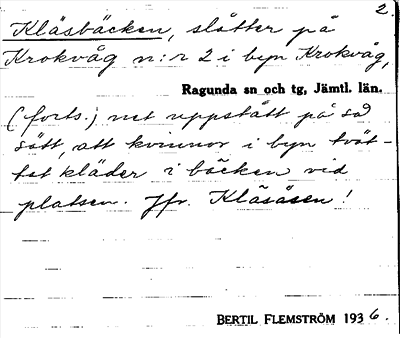 2.
Kläsbäcken, slåtter på
Krokvåg n:r 2 i byn Krokvåg,
Ragunda sn och tg, Jämtl. län.
(forts.) net uppstått på så
sätt, att kvinnor i byn tvät-
tat kläder i bäcken vid
platsen. Jfr. Kläsåsen!
BERTIL FLEMSTRÖM 1936.